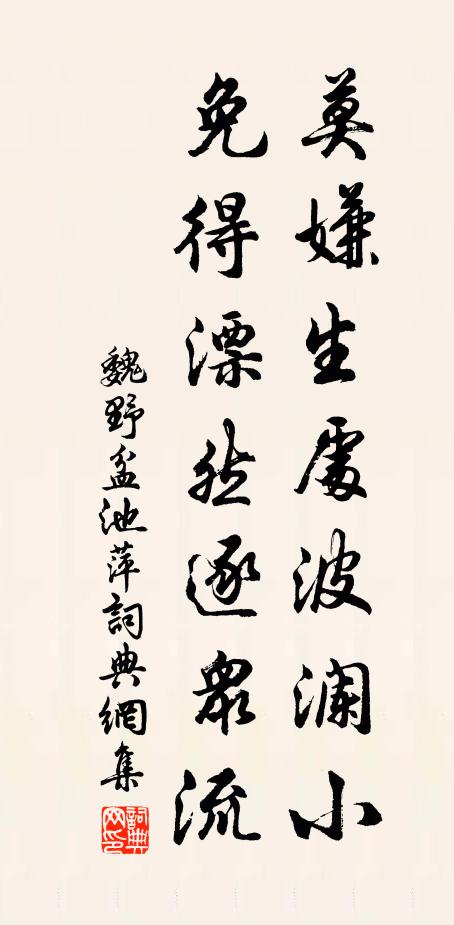 莫嫌生處波澜小
免得漂然逐眾流
魏野盆池萍詞典網集
詞典网印